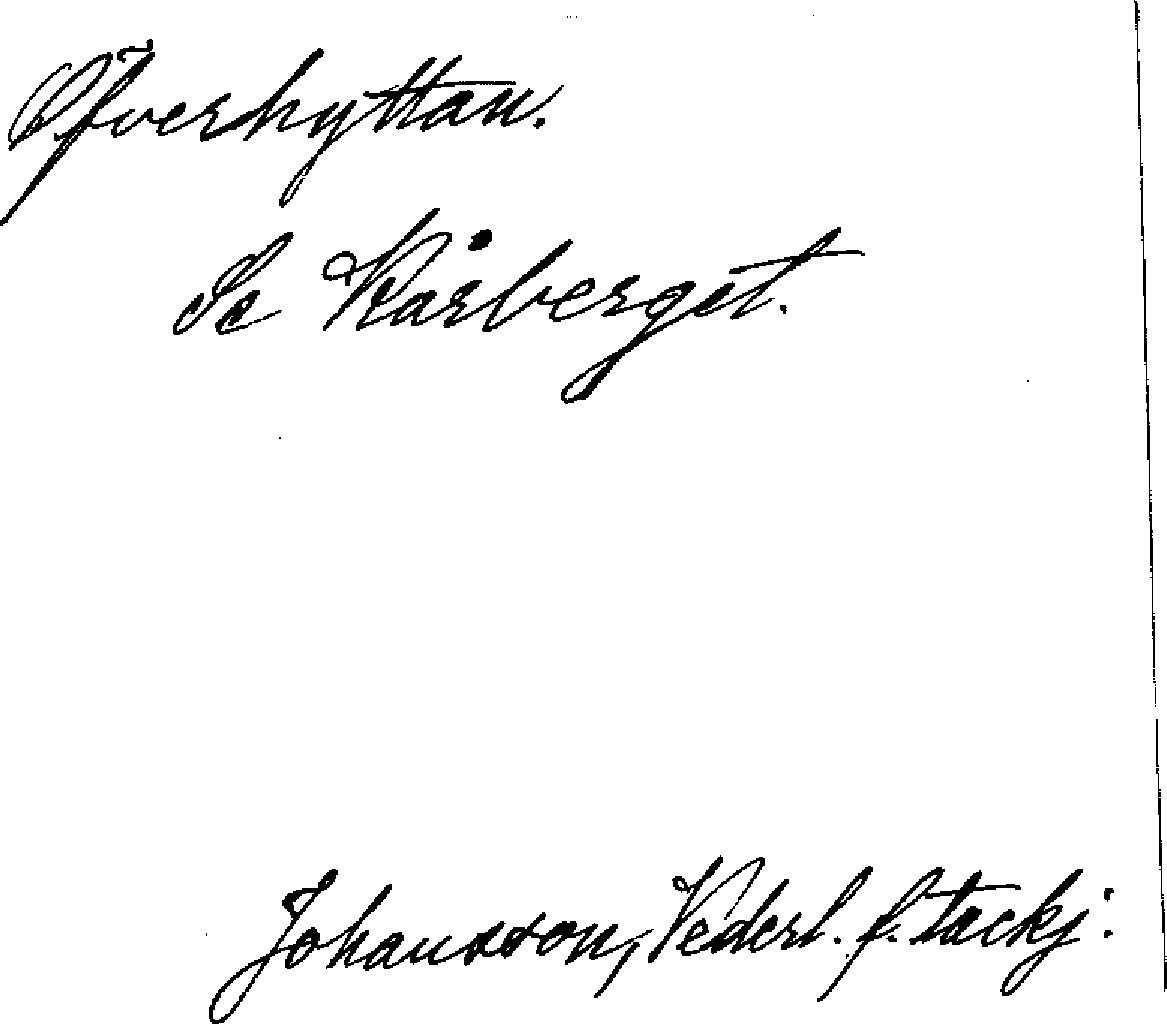 Öfverhyttan.
Se Kårberget.
Johansson, Vederl. f. tackj: